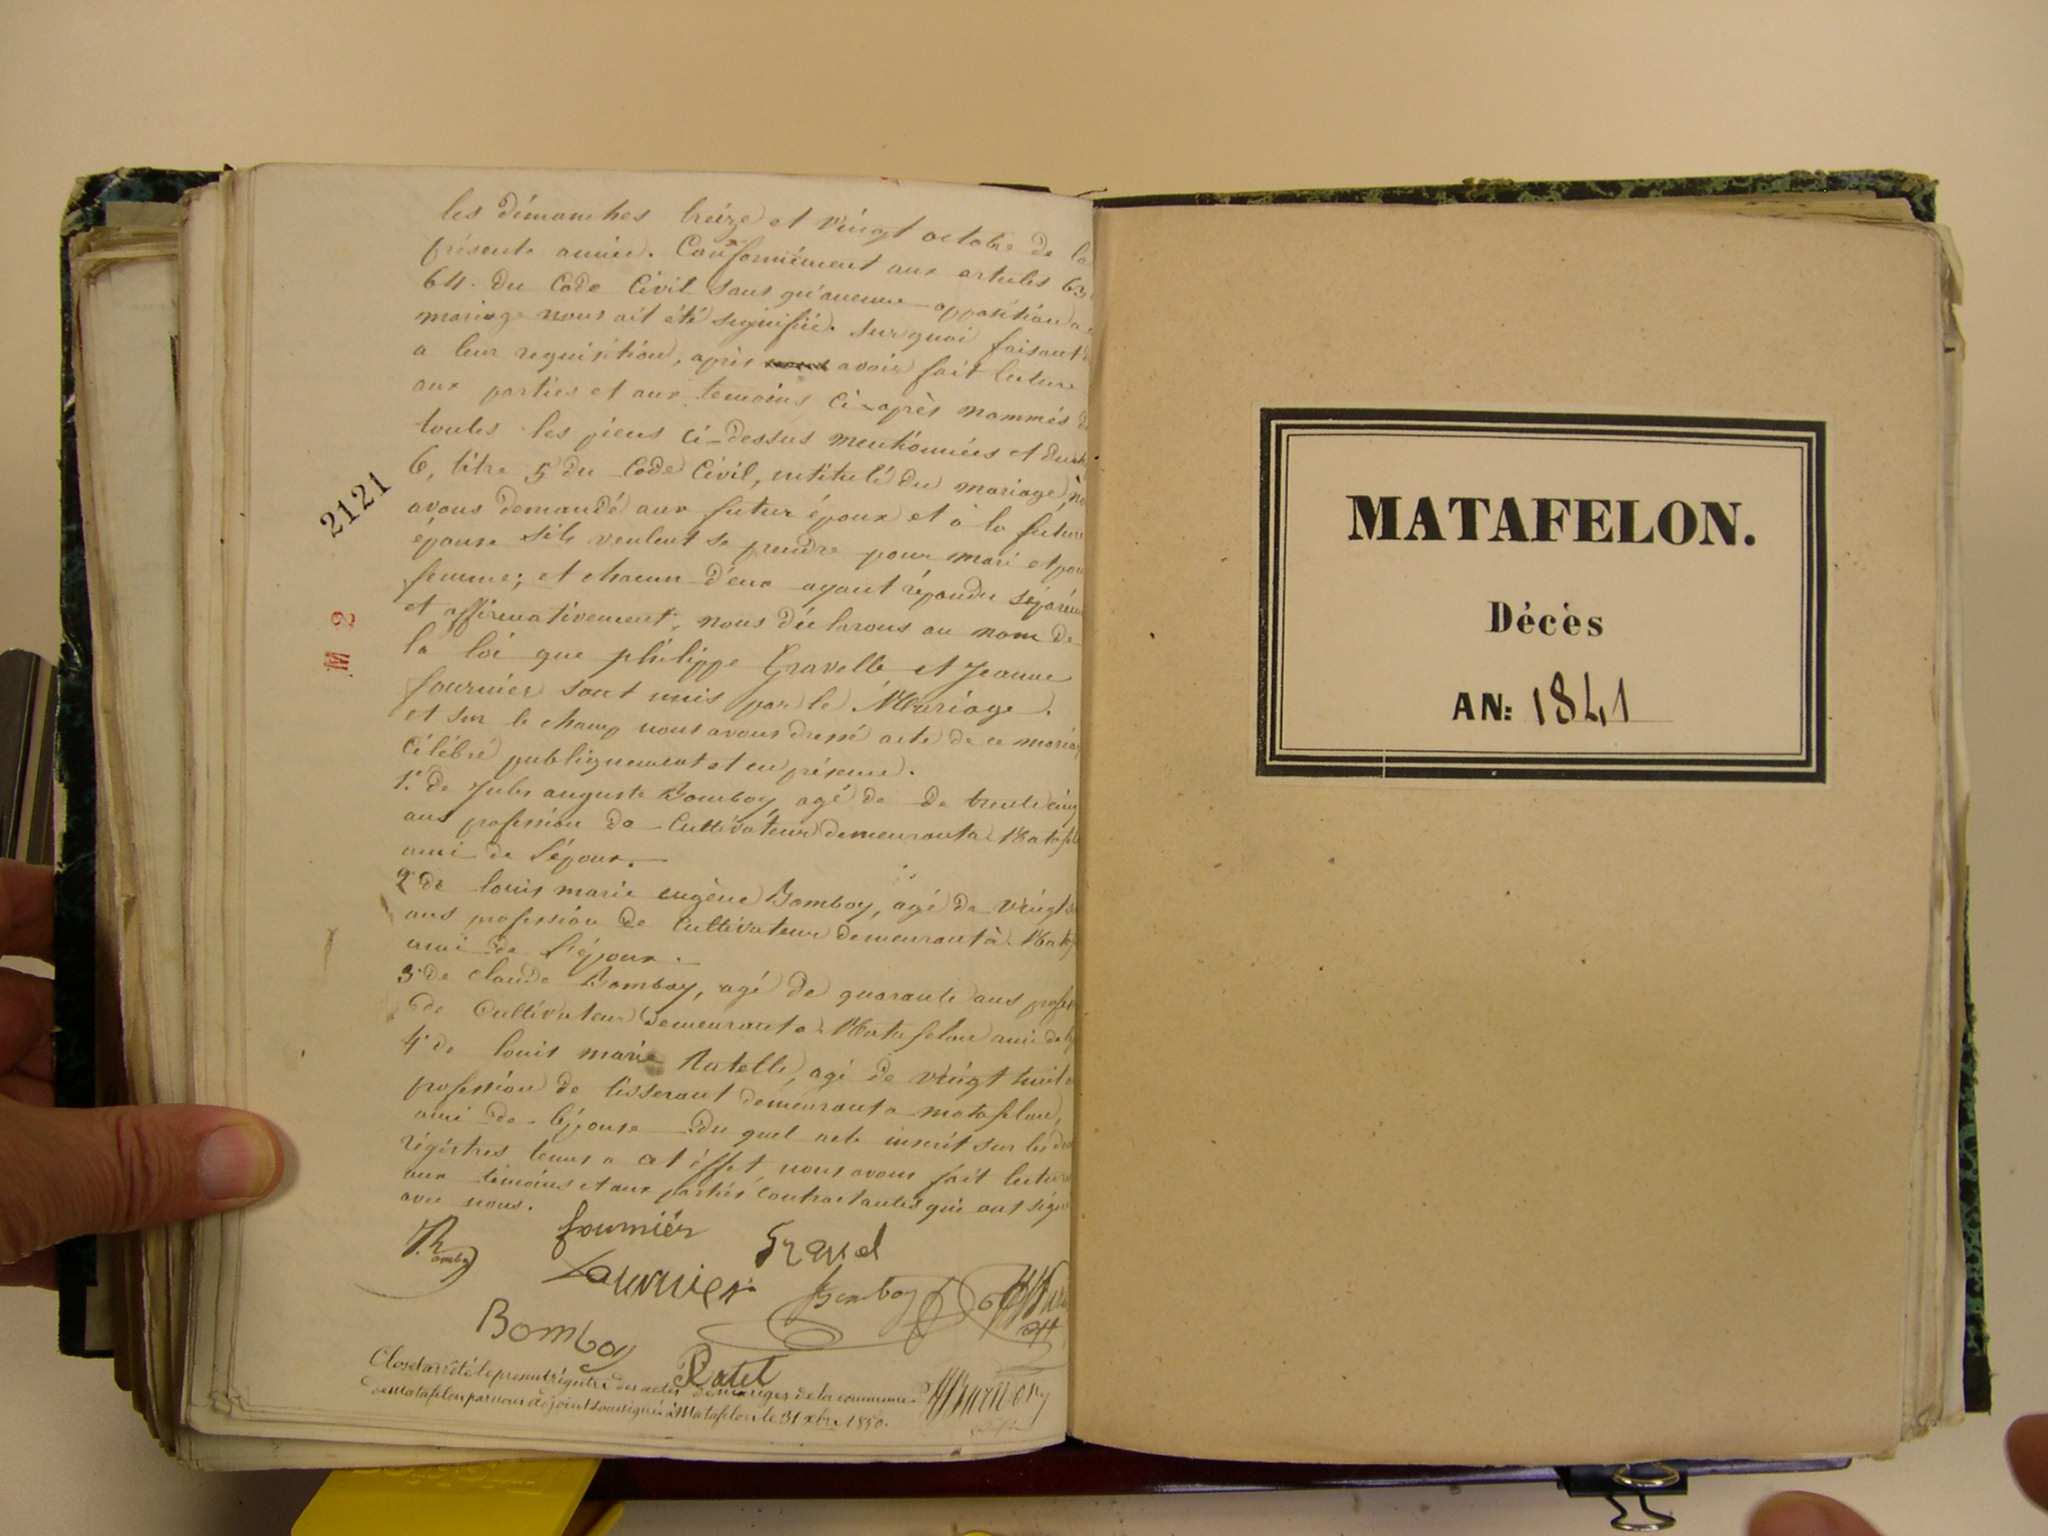 les dimanches treize et vingt octobre de la
présente année. Conformément aux articles 63
64. du Code Civil sans qu'aucune opposition a
mariage nous ait été signifiée. sur quoi faisant
a leur requisition, après avoir fait lecture
aux parties et aux temoins ci-après nommés
toutes les pieces ci-dessus mentionnées et du
6, titre 5 du Code Civil, intitulé du mariage,
avons demandé aux futur époux et à la future
épouse s'ils veulent se prendre pour mari et pour
femme; et chacun d'eux ayant répondu séparém
et affirmativement, nous déclarons au nom de
la loi que philippe Gravelle et Jeanne
fournier sont unis par le Mariage.
et sur le champ nous avons dressé acte de ce maria
célébré publiquement et en présence.
1° de Jules auguste Bomboy, agé de de trente cinq
ans profession de Cultivateur demeurant a Matafel
ami de l'époux.
2° de louis marie eugène Bomboy, agé de vingt
ans profession de Cultivateur demeurant à Mataf
ami de l'époux.
3° de claude Bomboy, agé de quarante ans profes
de Cultivateur demeurant a Matafelon ami de
4° de louis marie Ratelle, agé de vingt huit
profession de tisserant demeurant a matafelon,
ami de l'épouse du quel acte inscrit sur les
régistres tenus a cet éffet, nous avons fait lecture
aux témoins et aux parties contractantes qui ont sign
avec nous.
fournier
Gravel
fournier
Bomboy
Bomboy
Ratel
Clos et arrêté le présent régistre des actes de mariages de la commune
de matafelon par nous adjoint soussigné à Matafelon le 31 xbre 1850.
2121
M 2
MATAFELON.
Décès
AN: 1841